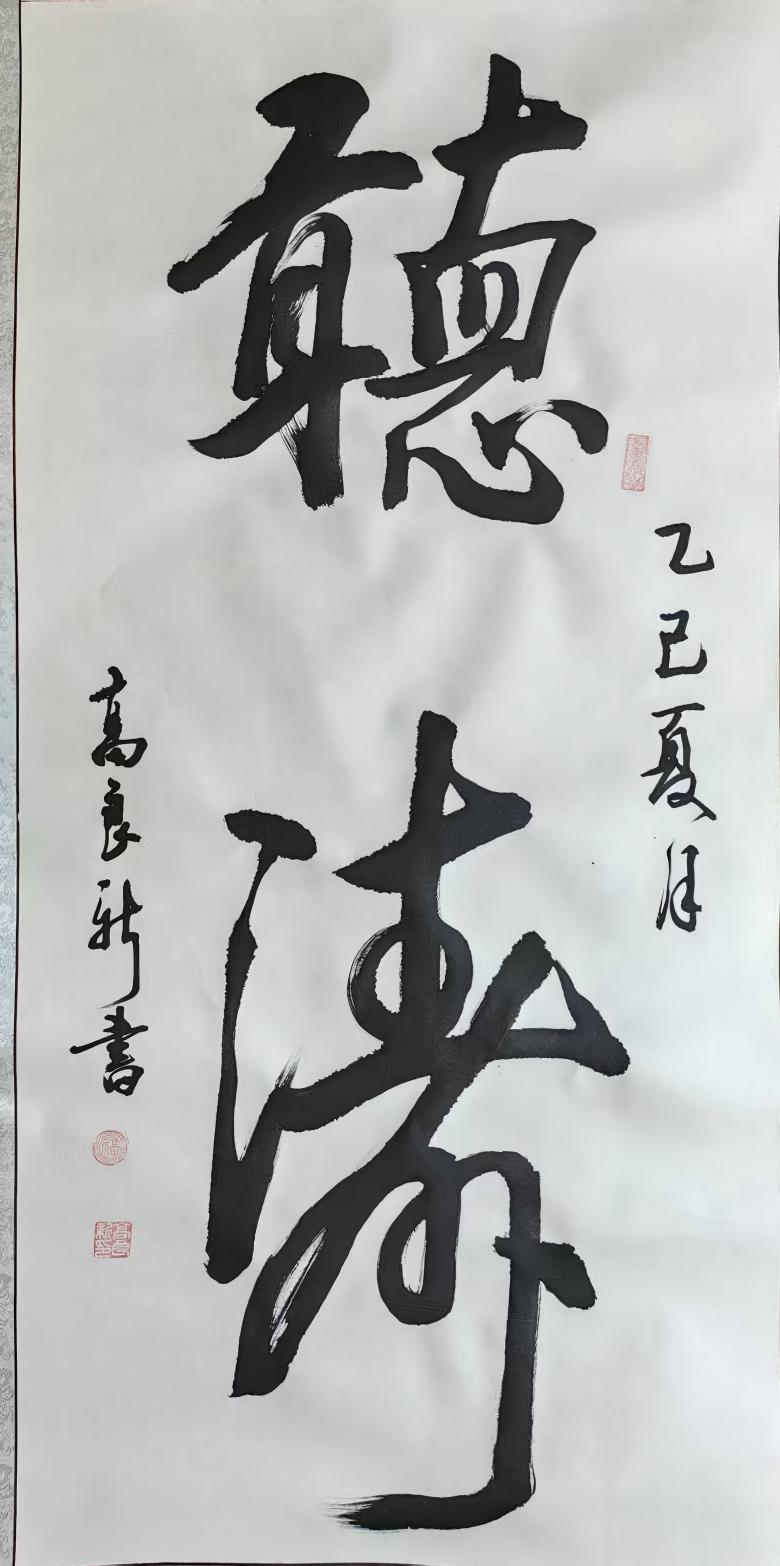 乙巳夏月
聽濤
高良新書